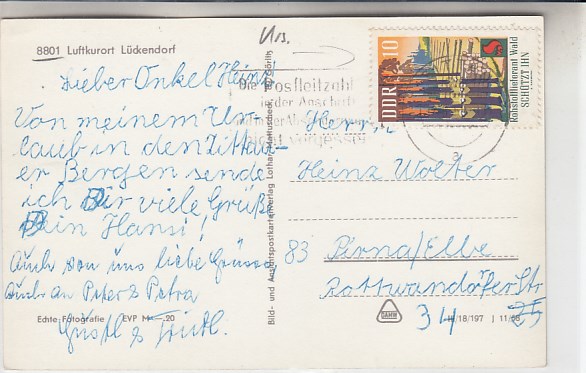 Urs.
8801 Luftkurort Lückendorf
Lieber Onkel Heinz
Von meinem Ur-
laub in den Zittau-
er Bergen sende
ich Dir viele Grüße
Dein Hansi!
Auch von uns liebe Grüsse
Auch an Peter & Petra
Gustl & Trudl.
Echte Fotografie EVP M —.20
Bild- und Ansichtspostkartenverlag Lothar Görlitz
DDR 10
Rohstofflieferant Wald
SCHÜTZT IHN
Die Postleitzahl
in der Anschrift
nicht vergessen
Herrn
Heinz Wolter
83 Pirna/Elbe
Rottwerndorfer Str
34
III/18/197 J 11/68